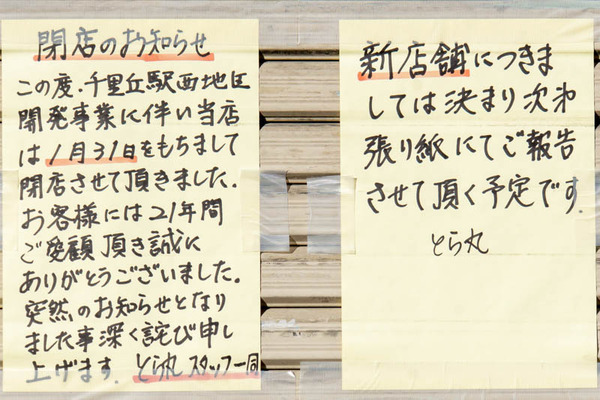 閉店のお知らせ
この度、千里丘駅西地区
開発事業に伴い当店
は1月31日をもちまして
閉店させて頂きました。
お客様には21年間
ご愛顧頂き誠に
ありがとうございました。
突然のお知らせとなり
ました事深く詫び申し
上げます。とら丸スタッフ一同
新店舗につきま
しては決まり次第
張り紙にてご報告
させて頂く予定です。
とら丸